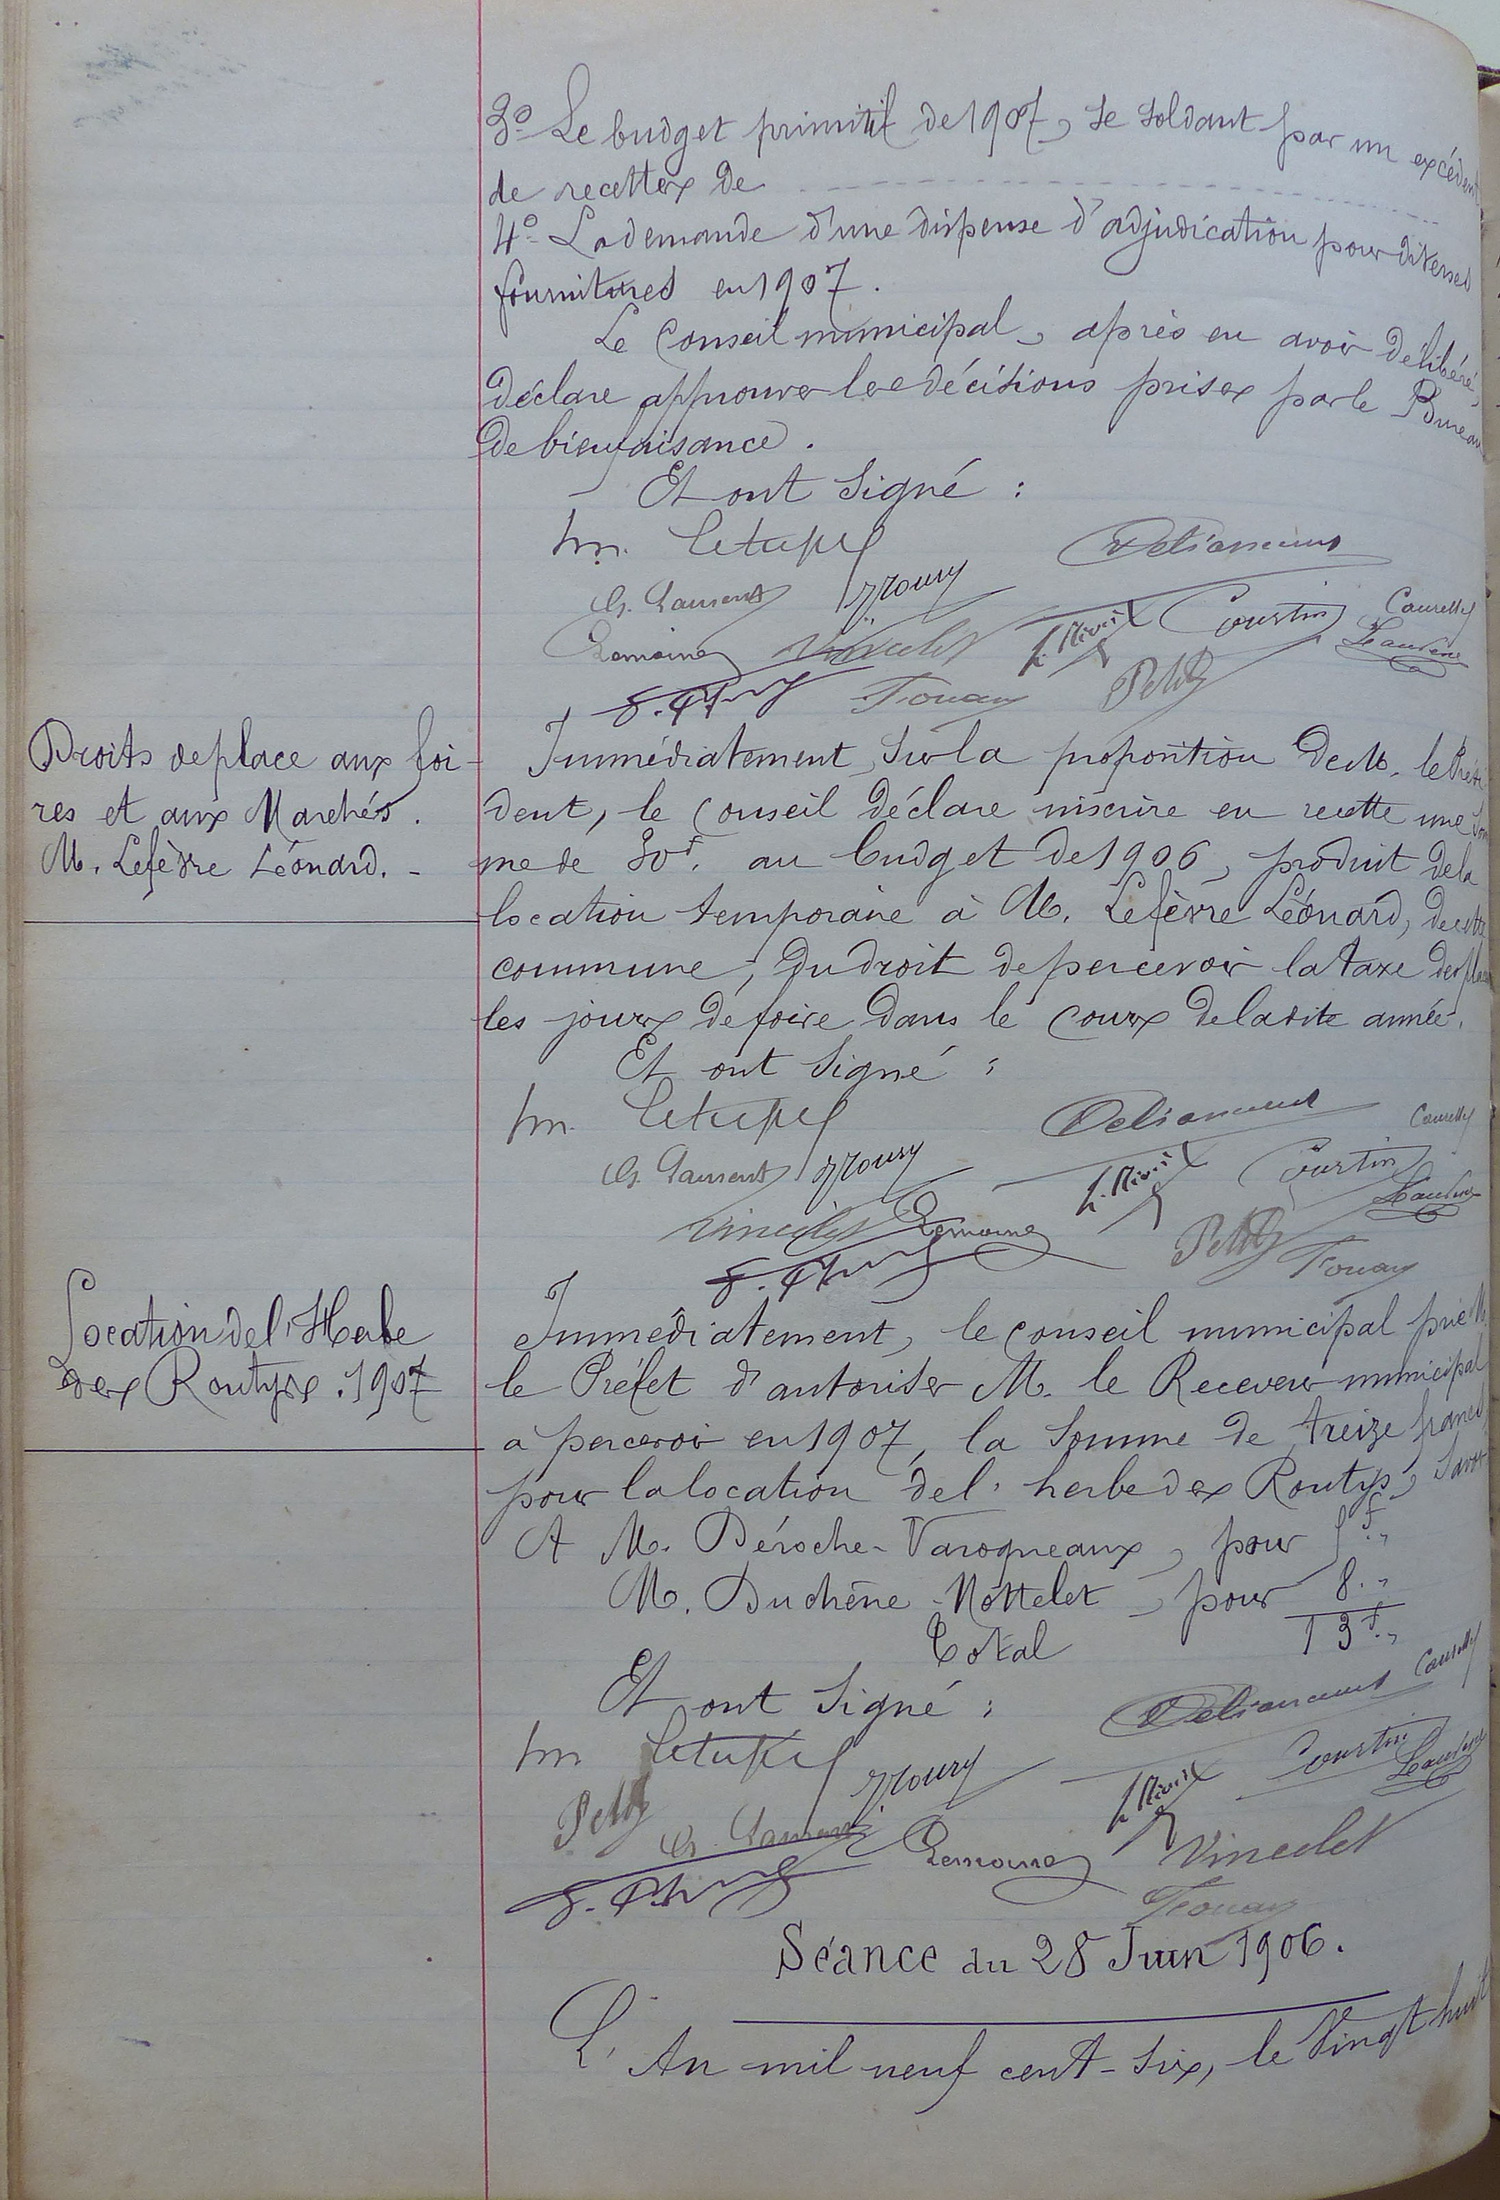 3º Le budget primitif de 1907, se soldant par un excédent
de recettes de
4º La demande d'une dispense d'adjudication pour diverses
fournitures en 1907.
Le Conseil municipal, après en avoir délibéré,
déclare approuver les décisions prises par le Bureau
de bienfaisance.
Et ont signé :
Ch. Laurent
Courtin
Lemoine Vincelet
Petit
Droits de place aux foi-
res et aux Marchés.
M. Lefèvre Léonard. -
Immédiatement, sur la proposition de M. le Prési
dent, le Conseil déclare inscrire en recette une som
me de 30f. au budget de 1906, produit de la
location temporaire à M. Lefèvre Léonard, de cette
commune, du droit de percevoir la taxe des places
les jours de foire dans le cours de ladite année.
Et ont signé :
Ch. Laurent
Courtin
Vincelet Lemoine
Petit
Location de l'Herbe
des Routys. 1907
Immédiatement, le conseil municipal prie M.
le Préfet d'autoriser M. le Receveur municipal
à percevoir en 1907, la somme de treize francs,
pour la location de l'herbe des Routys, savoir
A M. Déroche-Varoqueaux, pour 5f.,,
M. Duchêne-Nottelet, pour 8.,,
Total 13f.,,
Et ont signé :
Courtin
Petit
Ch. Laurent Lemoine Vincelet
Séance du 28 Juin 1906.
L'An mil neuf cent-six, le vingt huit